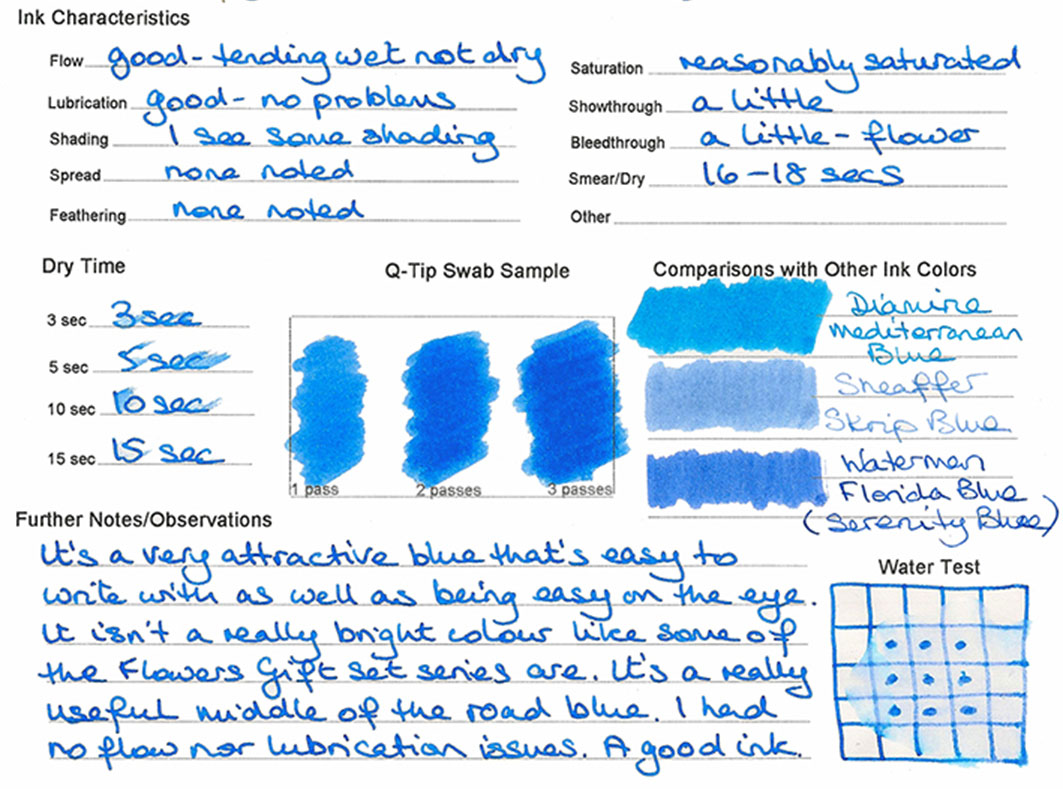 Ink Characteristics
Flow good - tending wet not dry
Lubrication good - no problems
Shading I see some shading
Spread none noted
Feathering none noted
Saturation reasonably saturated
Showthrough a little
Bleedthrough a little - flower
Smear/Dry 16-18 secs
Other
Dry Time
3 sec 3 sec
5 sec 5 sec
10 sec 10 sec
15 sec 15 sec
Q-Tip Swab Sample
1 pass 2 passes 3 passes
Comparisons with Other Ink Colors
Diamine
Mediterranean
Blue
Sheaffer
Skrip Blue
Waterman
Florida Blue
(Serenity Blue)
Further Notes/Observations
It's a very attractive blue that's easy to
write with as well as being easy on the eye.
It isn't a really bright colour like some of
the Flowers Gift Set series are. It's a really
useful middle of the road blue. I had
no flow nor lubrication issues. A good ink.
Water Test